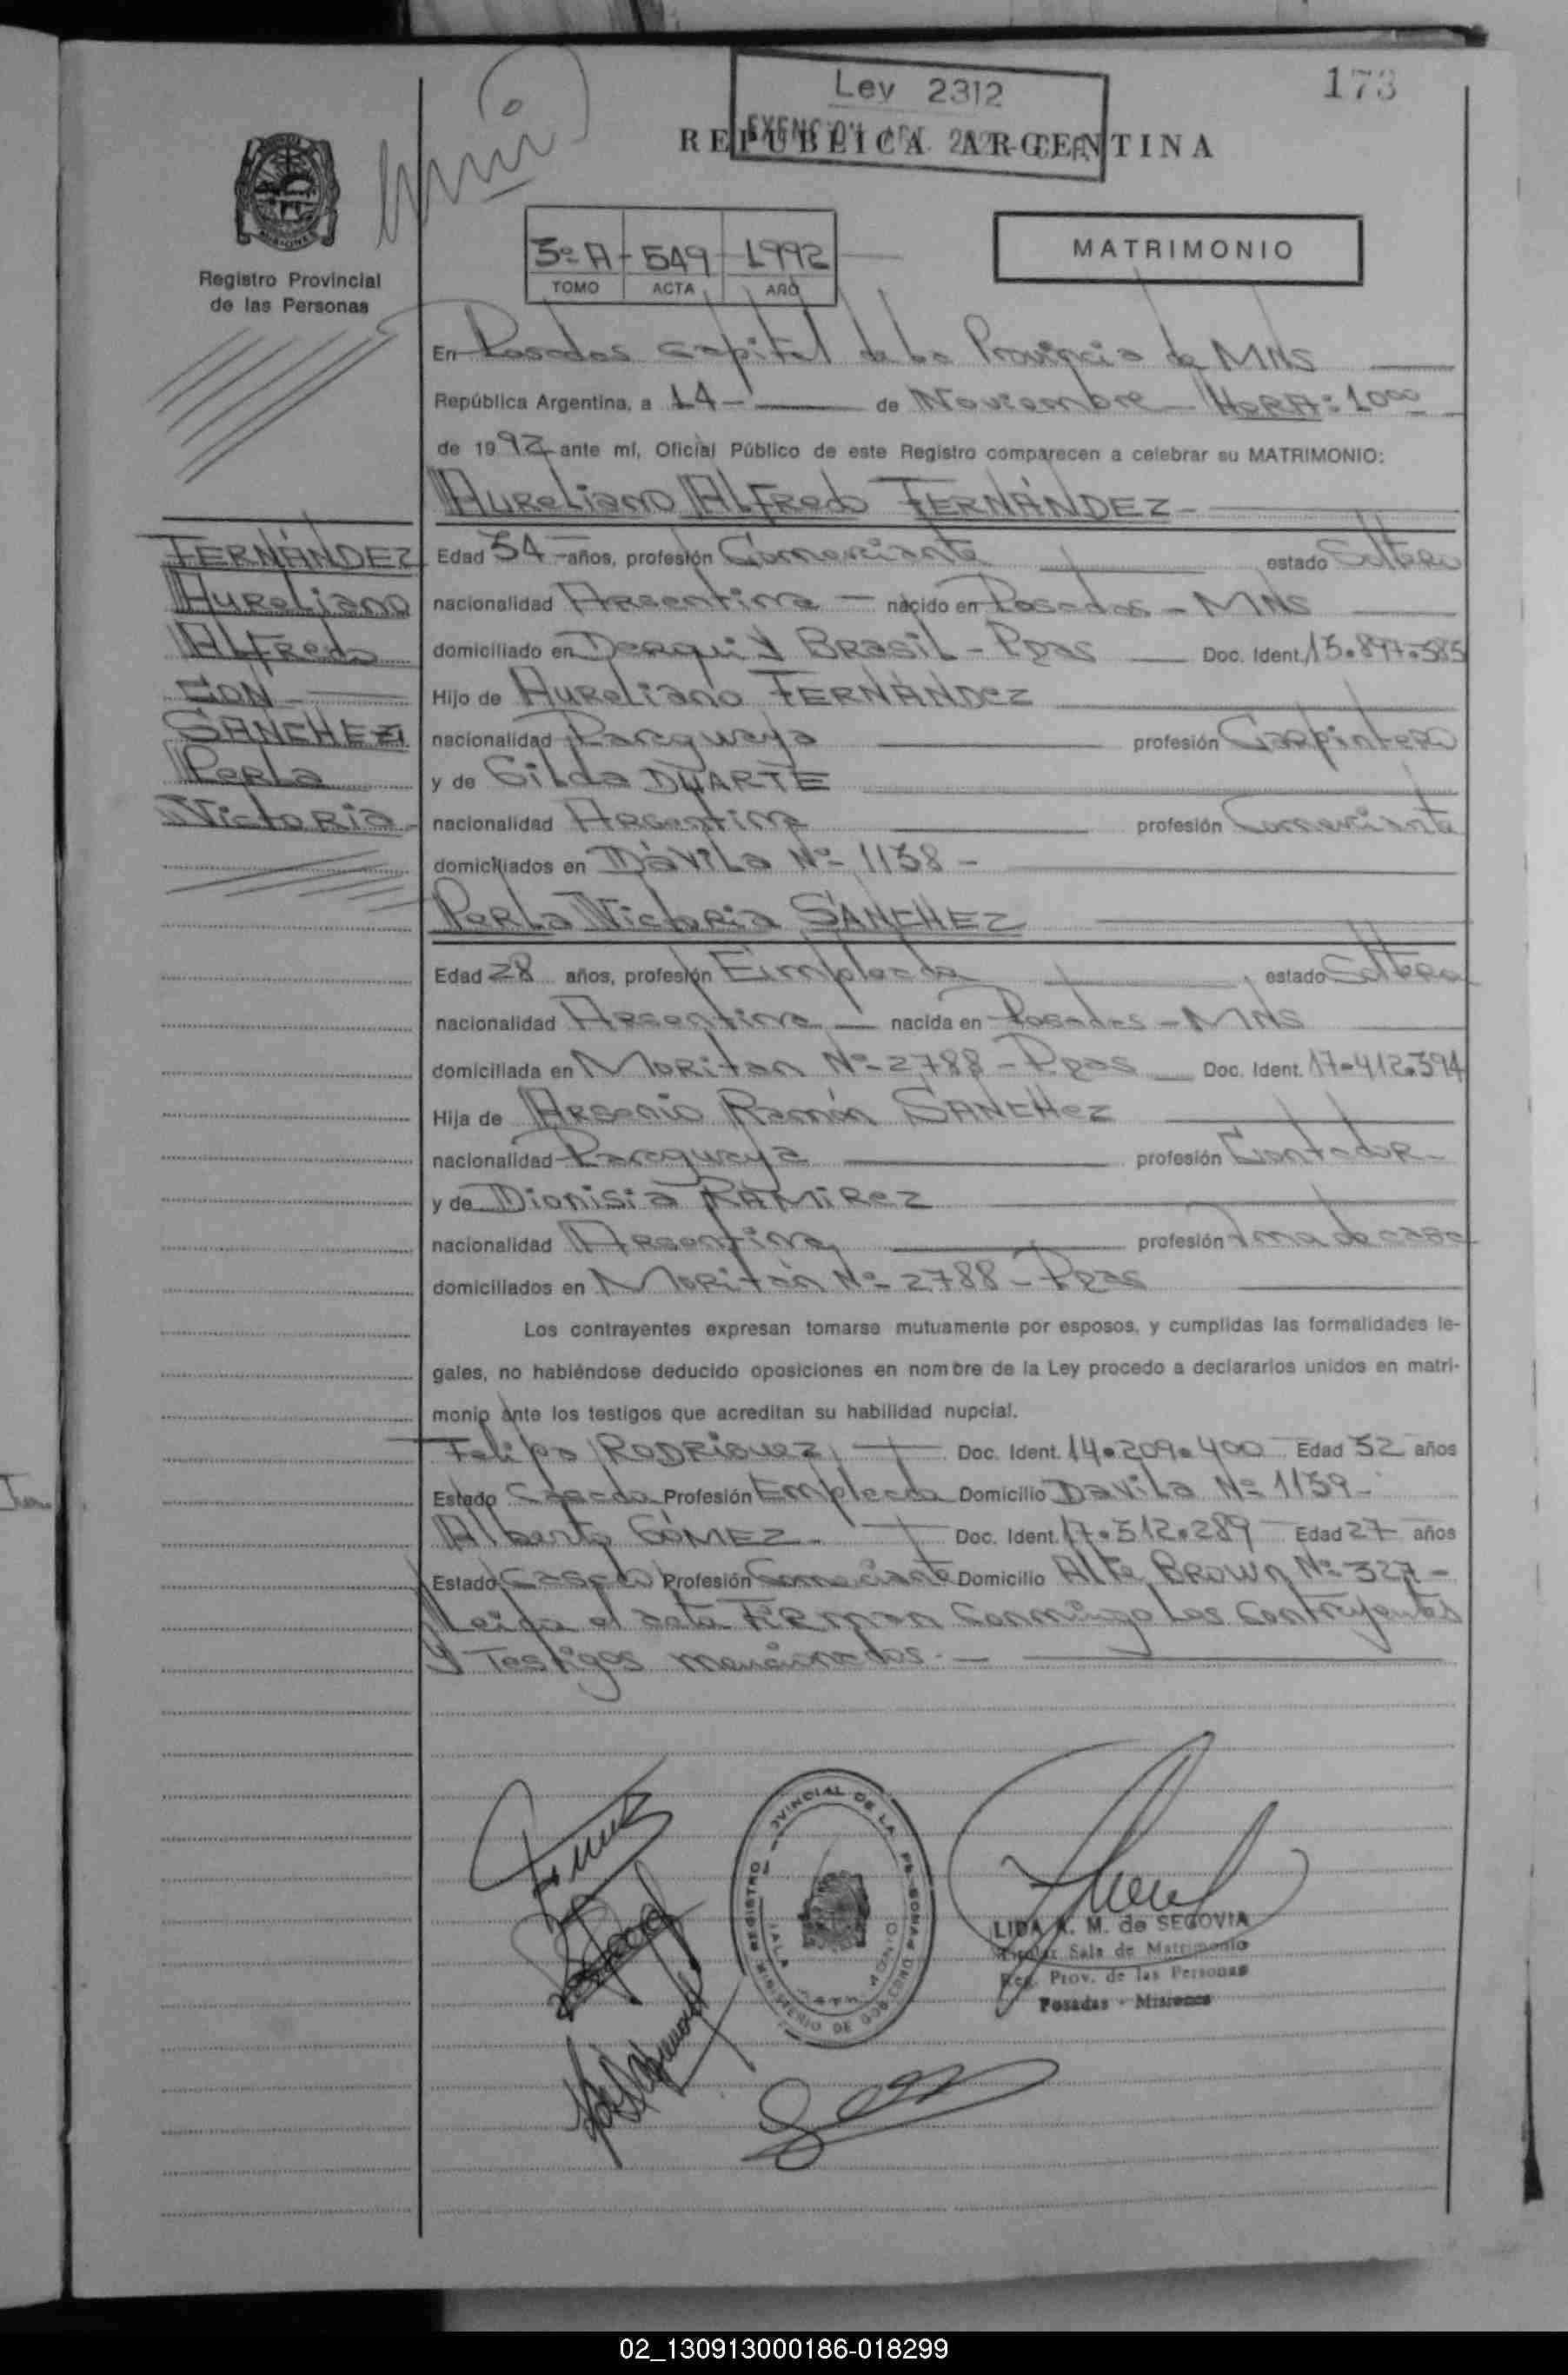 Ley 2312
173
REPUBLICA ARGENTINA
Registro Provincial
de las Personas
3º A 549 1992
TOMO ACTA AÑO
MATRIMONIO
En Posadas Capital de la Provincia de MNS
República Argentina, a 14- de Noviembre HORA: 10⁰⁰
de 1992 ante mí, Oficial Público de este Registro comparecen a celebrar su MATRIMONIO:
Aureliano Alfredo FERNÁNDEZ-
FERNÁNDEZ
Aureliano
Alfredo
CON
SÁNCHEZ
Perla
Victoria
Edad 34 años, profesión Comerciante estado Soltero
nacionalidad Argentina - nacido en Posadas - MNS
domiciliado en Derqui y BRASIL - Pdas Doc. Ident. 13.897.385
Hijo de Aureliano FERNÁNDEZ
nacionalidad Paraguaya profesión Carpintero
y de Gilda DUARTE
nacionalidad Argentina profesión Comerciante
domiciliados en Dávila Nº 1138 -
Perla Victoria SÁNCHEZ
Edad 28 años, profesión Empleada, estado Soltera
nacionalidad Argentina nacida en Posadas - MNS
domiciliada en Moritan Nº 2788 - Pdas Doc. Ident. 17.412.394
Hija de Arsenio Ramón SÁNCHEZ
nacionalidad Paraguaya profesión Contador-
y de Dionisia RAMIREZ
nacionalidad Argentina profesión Ama de casa
domiciliados en Moritán Nº 2788 - Pdas
Los contrayentes expresan tomarse mutuamente por esposos, y cumplidas las formalidades le-
gales, no habiéndose deducido oposiciones en nombre de la Ley procedo a declararlos unidos en matri-
monio ante los testigos que acreditan su habilidad nupcial.
Felipa RODRIGUEZ Doc. Ident. 14.209.400 Edad 32 años
Estado Casada Profesión Empleada Domicilio Dávila Nº 1139-
Alberto GÓMEZ. Doc. Ident. 17.312.289 Edad 27 años
Estado Casado Profesión Comerciante Domicilio Alte Brown Nº 327-
Leida el acta Firman Conmigo Los Contrayentes
y Testigos mencionados. -
REGISTRO PROVINCIAL DE LA PERSONAS
MINISTERIO DE GOBIERNO
LIDA A. M. de SEGOVIA
Titular Sala de Matrimonio
Reg. Prov. de las Personas
Posadas - Misiones
02_130913000186-018299